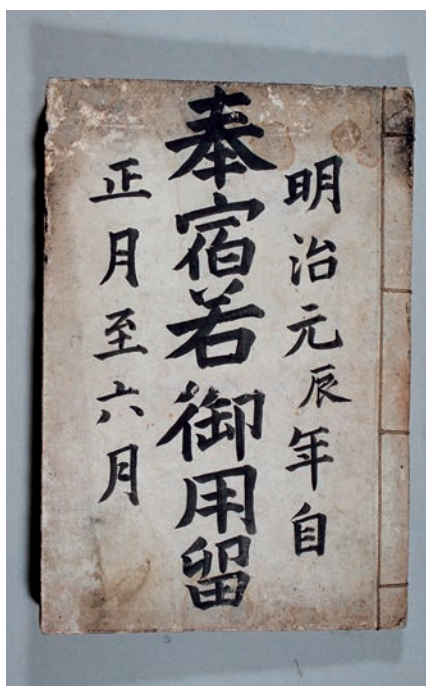 明治元辰年自
奉宿若御用留
正月至六月